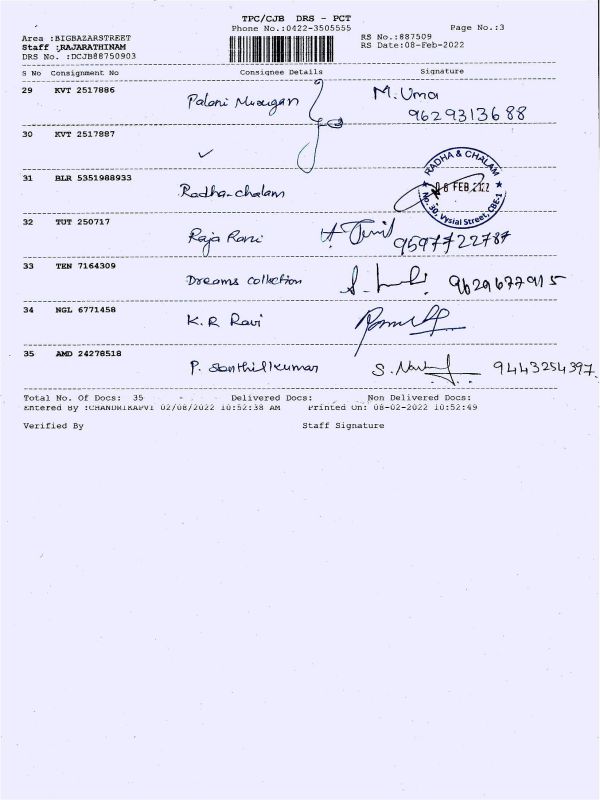 TPC/CJB DRS - PCT
Phone No.:0422-3505555
Page No.:3
Area :BIGBAZARSTREET
RS No.:887509
Staff :RAJARATHINAM
RS Date:08-Feb-2022
DRS No. :DCJB88750903
S No Consignment No Consignee Details Signature
29 KVT 2517886 Palani Murugan M. Uma
9629313688
30 KVT 2517887
✓
31 BLR 5351988933 Radha-chalam
RADHA & CHALAM
FEB 2022
No. 30, Vysial Street, CBE-1
32 TUT 250717 Raja Rani 9597722787
33 TEN 7164309 Dreams collection 9629677915
34 NGL 6771458 K. R Ravi
35 AMD 24278518 P. Santhilkumar 9443254397.
Total No. Of Docs: 35 Delivered Docs: Non Delivered Docs:
Entered By :CHANDRIKAPVT 02/08/2022 10:52:38 AM Printed On: 08-02-2022 10:52:49
Verified By Staff Signature